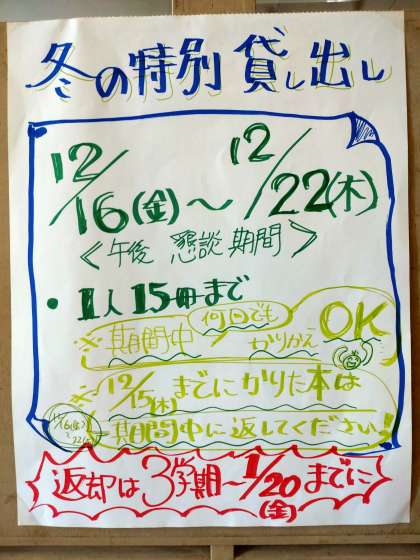 冬の特別貸し出し
12/16(金)〜12/22(木)
<午後 懇談期間>
・1人15冊まで
※期間中何回でもかりかえOK
※12/15(木)までにかりた本は
期間中に返してください!
返却は3学期〜1/20までに
(金)